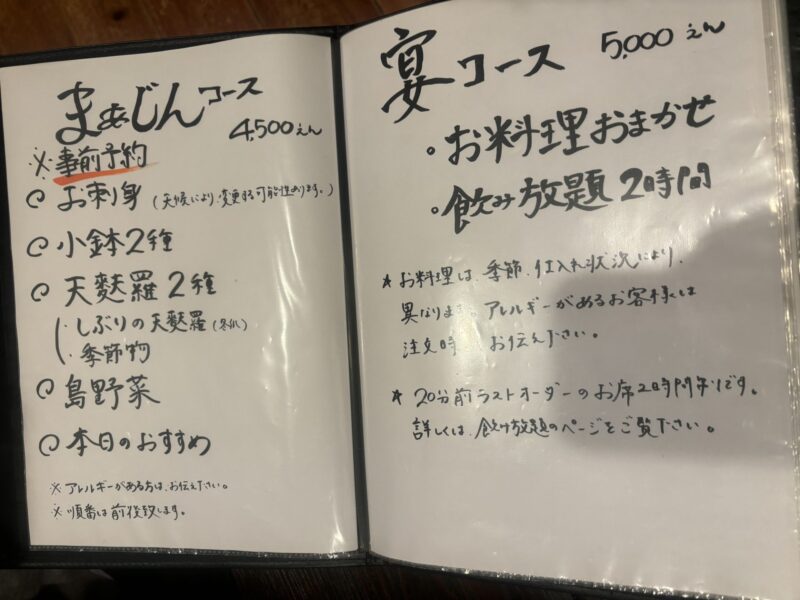 まぁじんコース
4,500えん
※事前予約
お刺身（天候により、変更する可能性あります。）
小鉢2種
天麩羅2種
・しぶりの天麩羅（冬瓜）
・季節物
島野菜
本日のおすすめ
※アレルギーがある方は、お伝え下さい。
※順番は前後致します。
宴コース 5,000えん
・お料理おまかせ
・飲み放題2時間
★お料理は、季節、仕入れ状況により、
異なります。アレルギーがあるお客様は
注文時 お伝え下さい。
★20分前ラストオーダーのお席2時間制です。
詳しくは、飲み放題のページをご覧下さい。